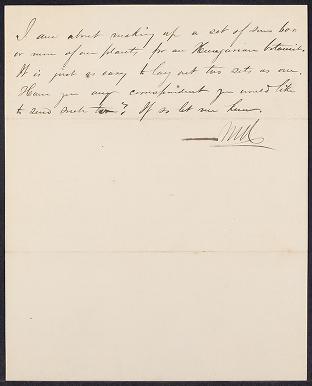 I am about making up a set of some 600
or more of our plants for an Hungarian botanist.
It is just as easy to lay out two sets as one.
Have you any correspondent you would like
to send such to? If so let me know.